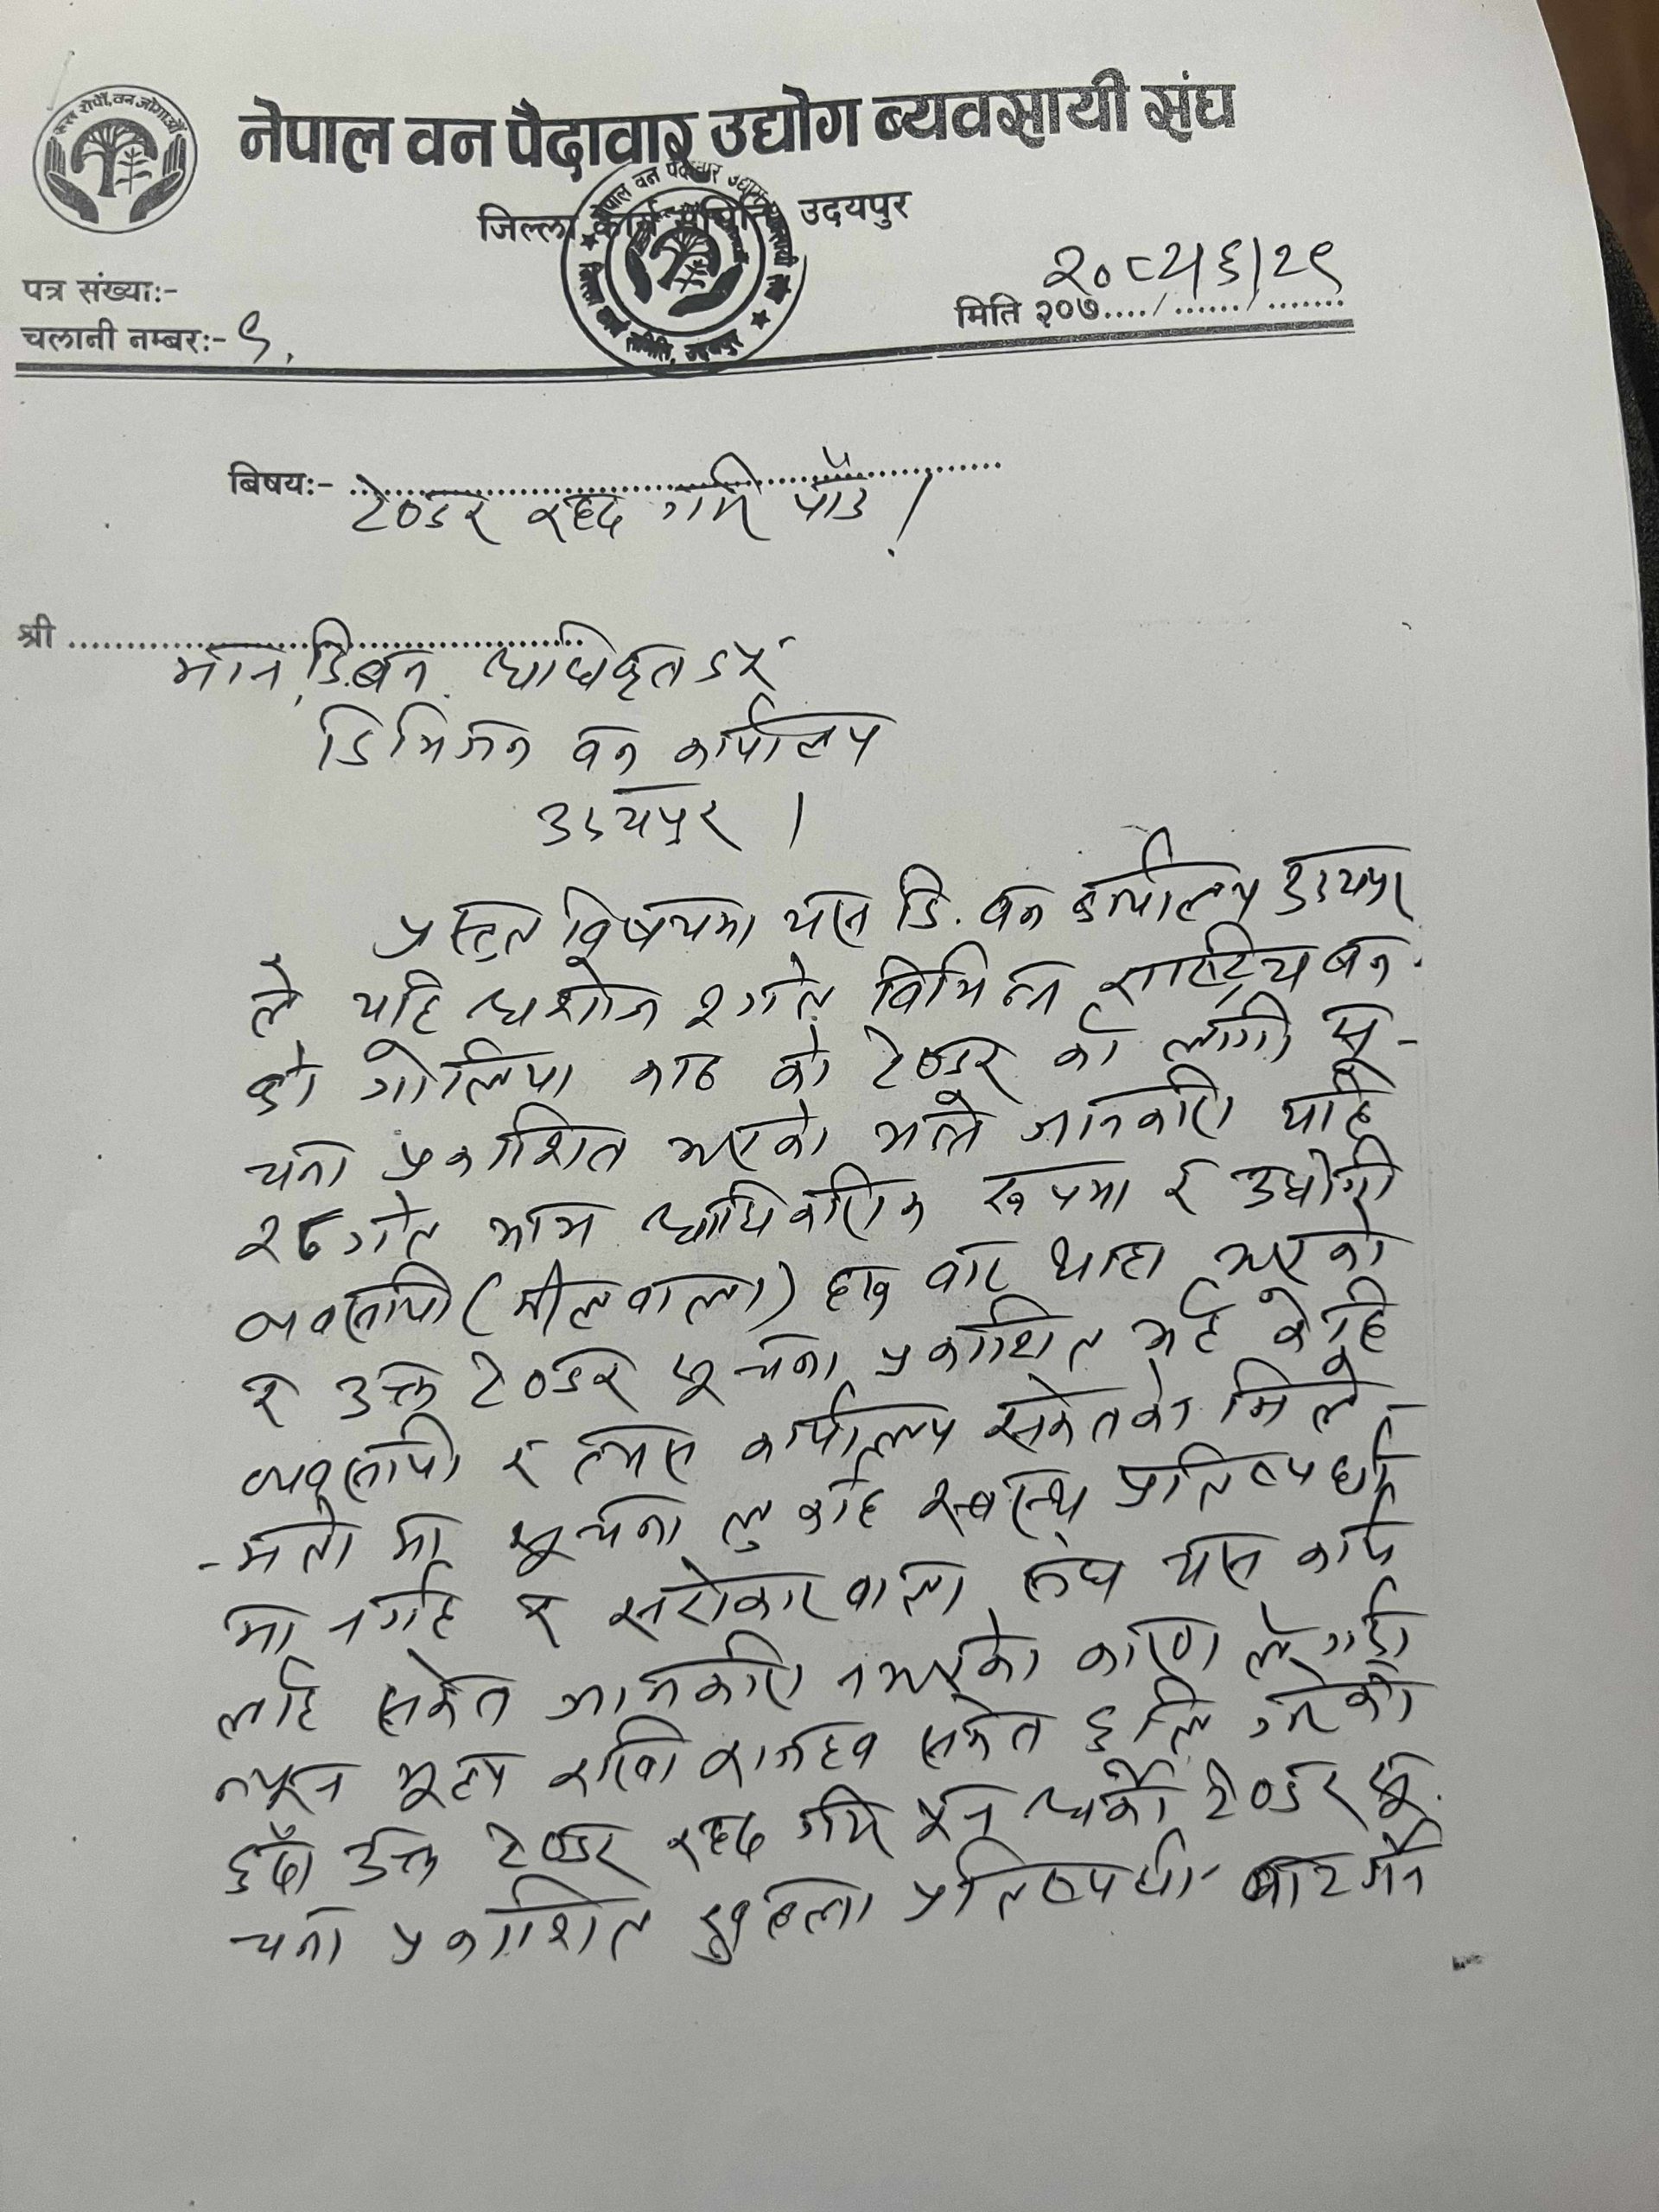 रुख रोपौं, वन जोगाऔं
नेपाल वन पैदावार उद्योग ब्यवसायी संघ
जिल्ला कार्य समिति, उदयपुर
नेपाल वन पैदावार उद्योग
जिल्ला कार्य समिति, उदयपुर
पत्र संख्याः-
चलानी नम्बरः- ९.
२०८२/६/२९
मिति २०७..../....../.......
बिषयः- ................................
टेण्डर रद्द गरि पाउँ ।
श्री ................................
मान. डि.बन. अधिकृत ज्यू
डिभिजन वन कार्यालय
उदयपुर ।
प्रस्तुत विषयमा यस डि. वन कार्यालय उदयपुर
ले यहि अशोज २ गते विभिन्न राष्ट्रिय बन
को गोलिया काठ को टेण्डर को लागी सू-
चना प्रकाशित भएको भन्ने जानकारी यहि
२८ गते मात्र आधिकारीक रूपमा र उद्योगी
व्यवसायी (मीलवाला) बाट थाहा भएको
र उक्त टेण्डर सूचना प्रकाशित भई केहि
व्यवसायी र त्यस कार्यालय समेतको मिले-
-मतो मा सूचना लुकाई स्वस्थ्य प्रतिष्पर्धा
मा नगई र सरोकारवाला संघ यस कार्य
लाई समेत जानकारी नभएको कारण ले गर्दा
न्यून मूल्य राखी राजश्व समेत छलि गरेको
हुँदा उक्त टेण्डर रद्द गरि पुन अर्को टेण्डर सू
चना प्रकाशित खुल्ला प्रतिष्पर्धा बाट गर्न